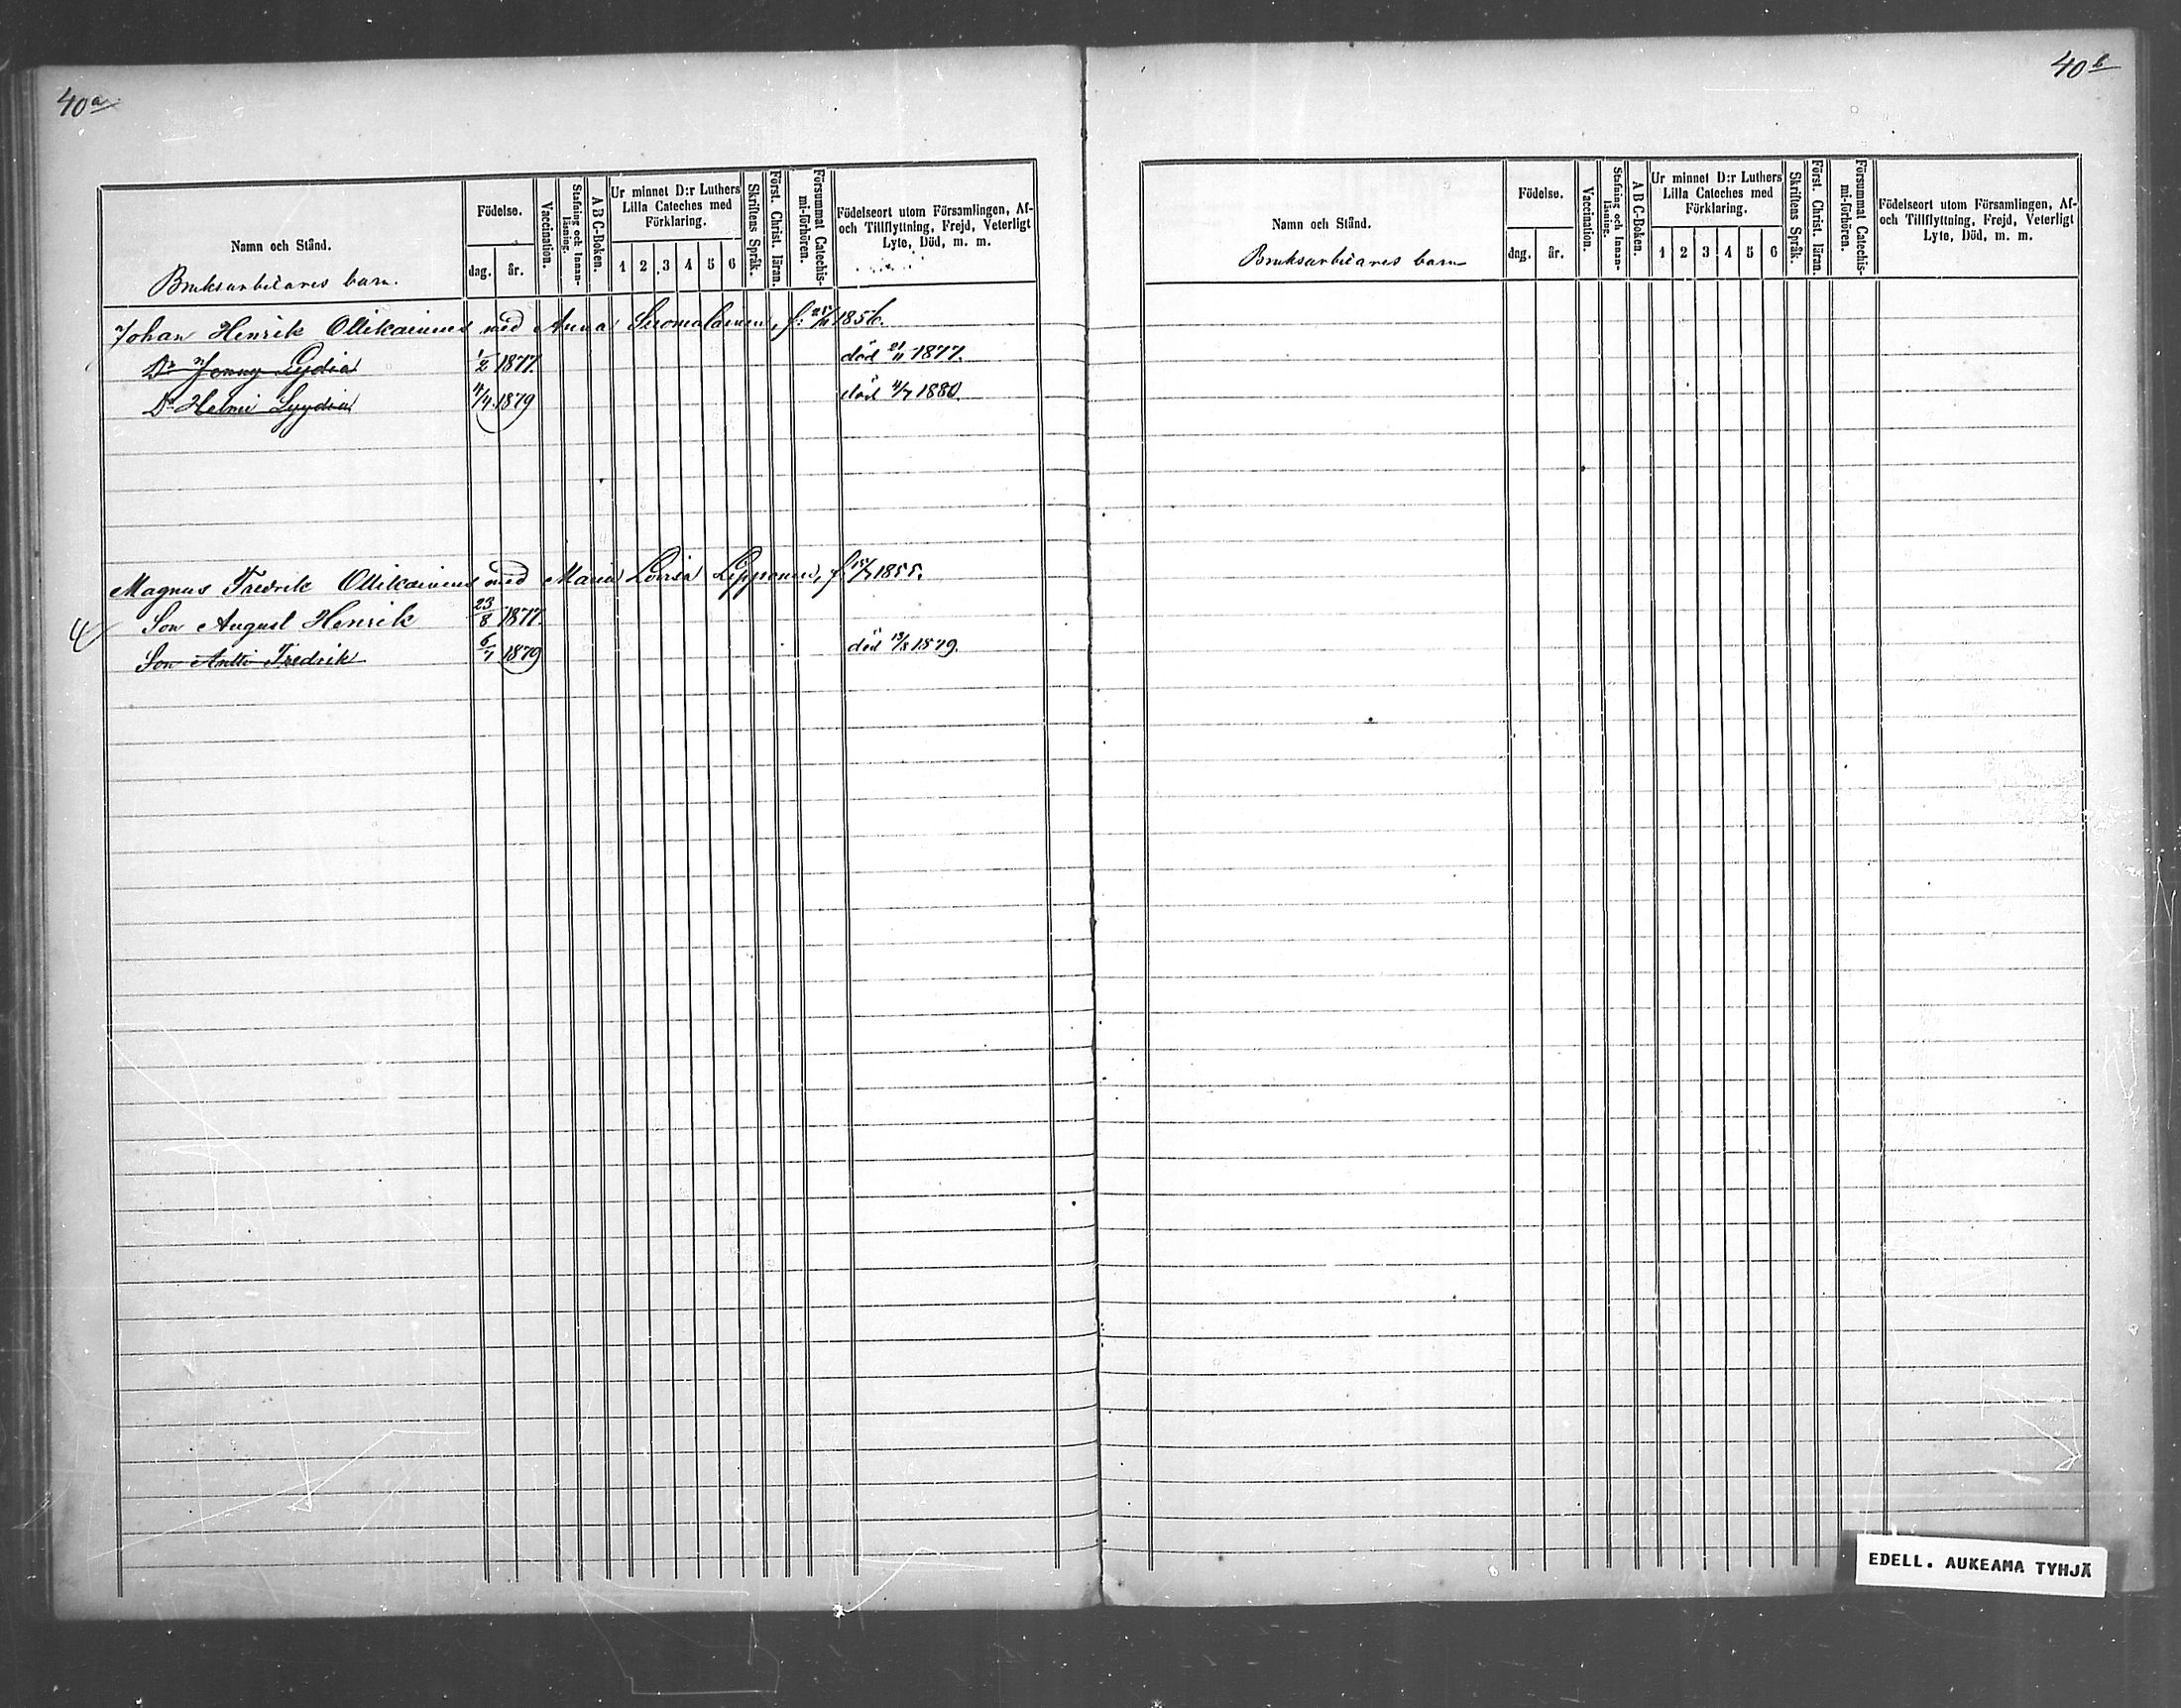 40a
Namn och Stånd.
Bruksarbetares barn.
Födelse.
dag.
år.
Vaccination.
Stafning och Innan-läsning.
A B C-Boken.
Ur minnet D:r Luthers
Lilla Cateches med
Förklaring.
1 2 3 4 5 6
Skriftens Språk.
Först. Christ. läran.
Försummat Catechis-
mi-förhören.
Födelseort utom Församlingen, Af-
och Tillflyttning, Frejd, Veterligt
Lyte, Död, m. m.
Johan Henrik Ollikainen med Anna Suomalainen, f: 1856.
Dr Jenny Lydia 1/2 1877. död 21/11 1877.
Dr Helmi Lyydia 1879 död 4/7 1880.
Magnus Fredrik Ollikainen med Maria Lovisa Lipponen, f. 1855.
4 Son August Henrik 23/8 1877.
Son Antti Fredrik 6/7 1879 död 13/8 1879.
40b
Namn och Stånd.
Bruksarbetares barn
Födelse.
dag.
år.
Vaccination.
Stafning och Innan-
läsning.
A B C-Boken.
Ur minnet D:r Luthers
Lilla Cateches med
Förklaring.
1 2 3 4 5 6
Skriftens Språk.
Först. Christ. läran.
Försummat Catechis-
mi-förhören.
Födelseort utom Församlingen, Af-
och Tillflyttning, Frejd, Veterligt
Lyte, Död, m. m.
EDELL. AUKEAMA TYHJÄ